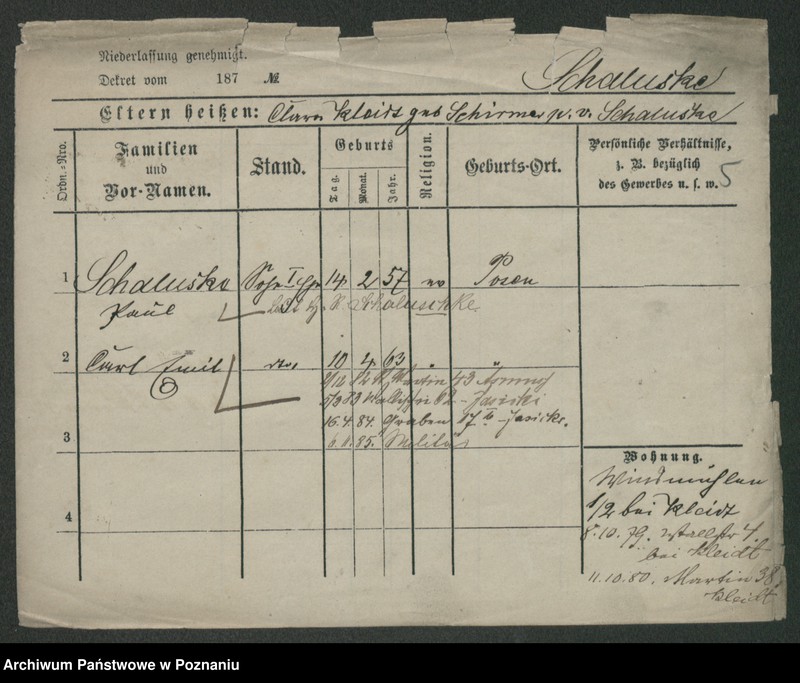 Niederlassung genehmigt.
Dekret vom 187 №
Schaluske
Eltern heißen: Clara Kleidt geb Schirmer p. v. Schaluske
Ordn.-Nro.
Familien und Vor-Namen.
Stand.
Geburts
Tag.
Monat.
Jahr.
Religion.
Geburts-Ort.
Persönliche Verhältnisse,
z. B. bezüglich
des Gewerbes u. s. w. 5
1 Schaluske 14 2 57 ev Posen
Paul Schaluschke
2 Carl Emil dto. 10 4 63 " "
82 Martin 43
83 Wallischei 62 - Jasicki
16.4.84. Graben 17 - Jasicki.
85. Militär
3
4
Wohnung.
Windmühlen
1/2 bei Kleidt
8.10.79. Wallstr 4.
bei Kleidt
11.10.80. Martin 38
Kleidt
Archiwum Państwowe w Poznaniu